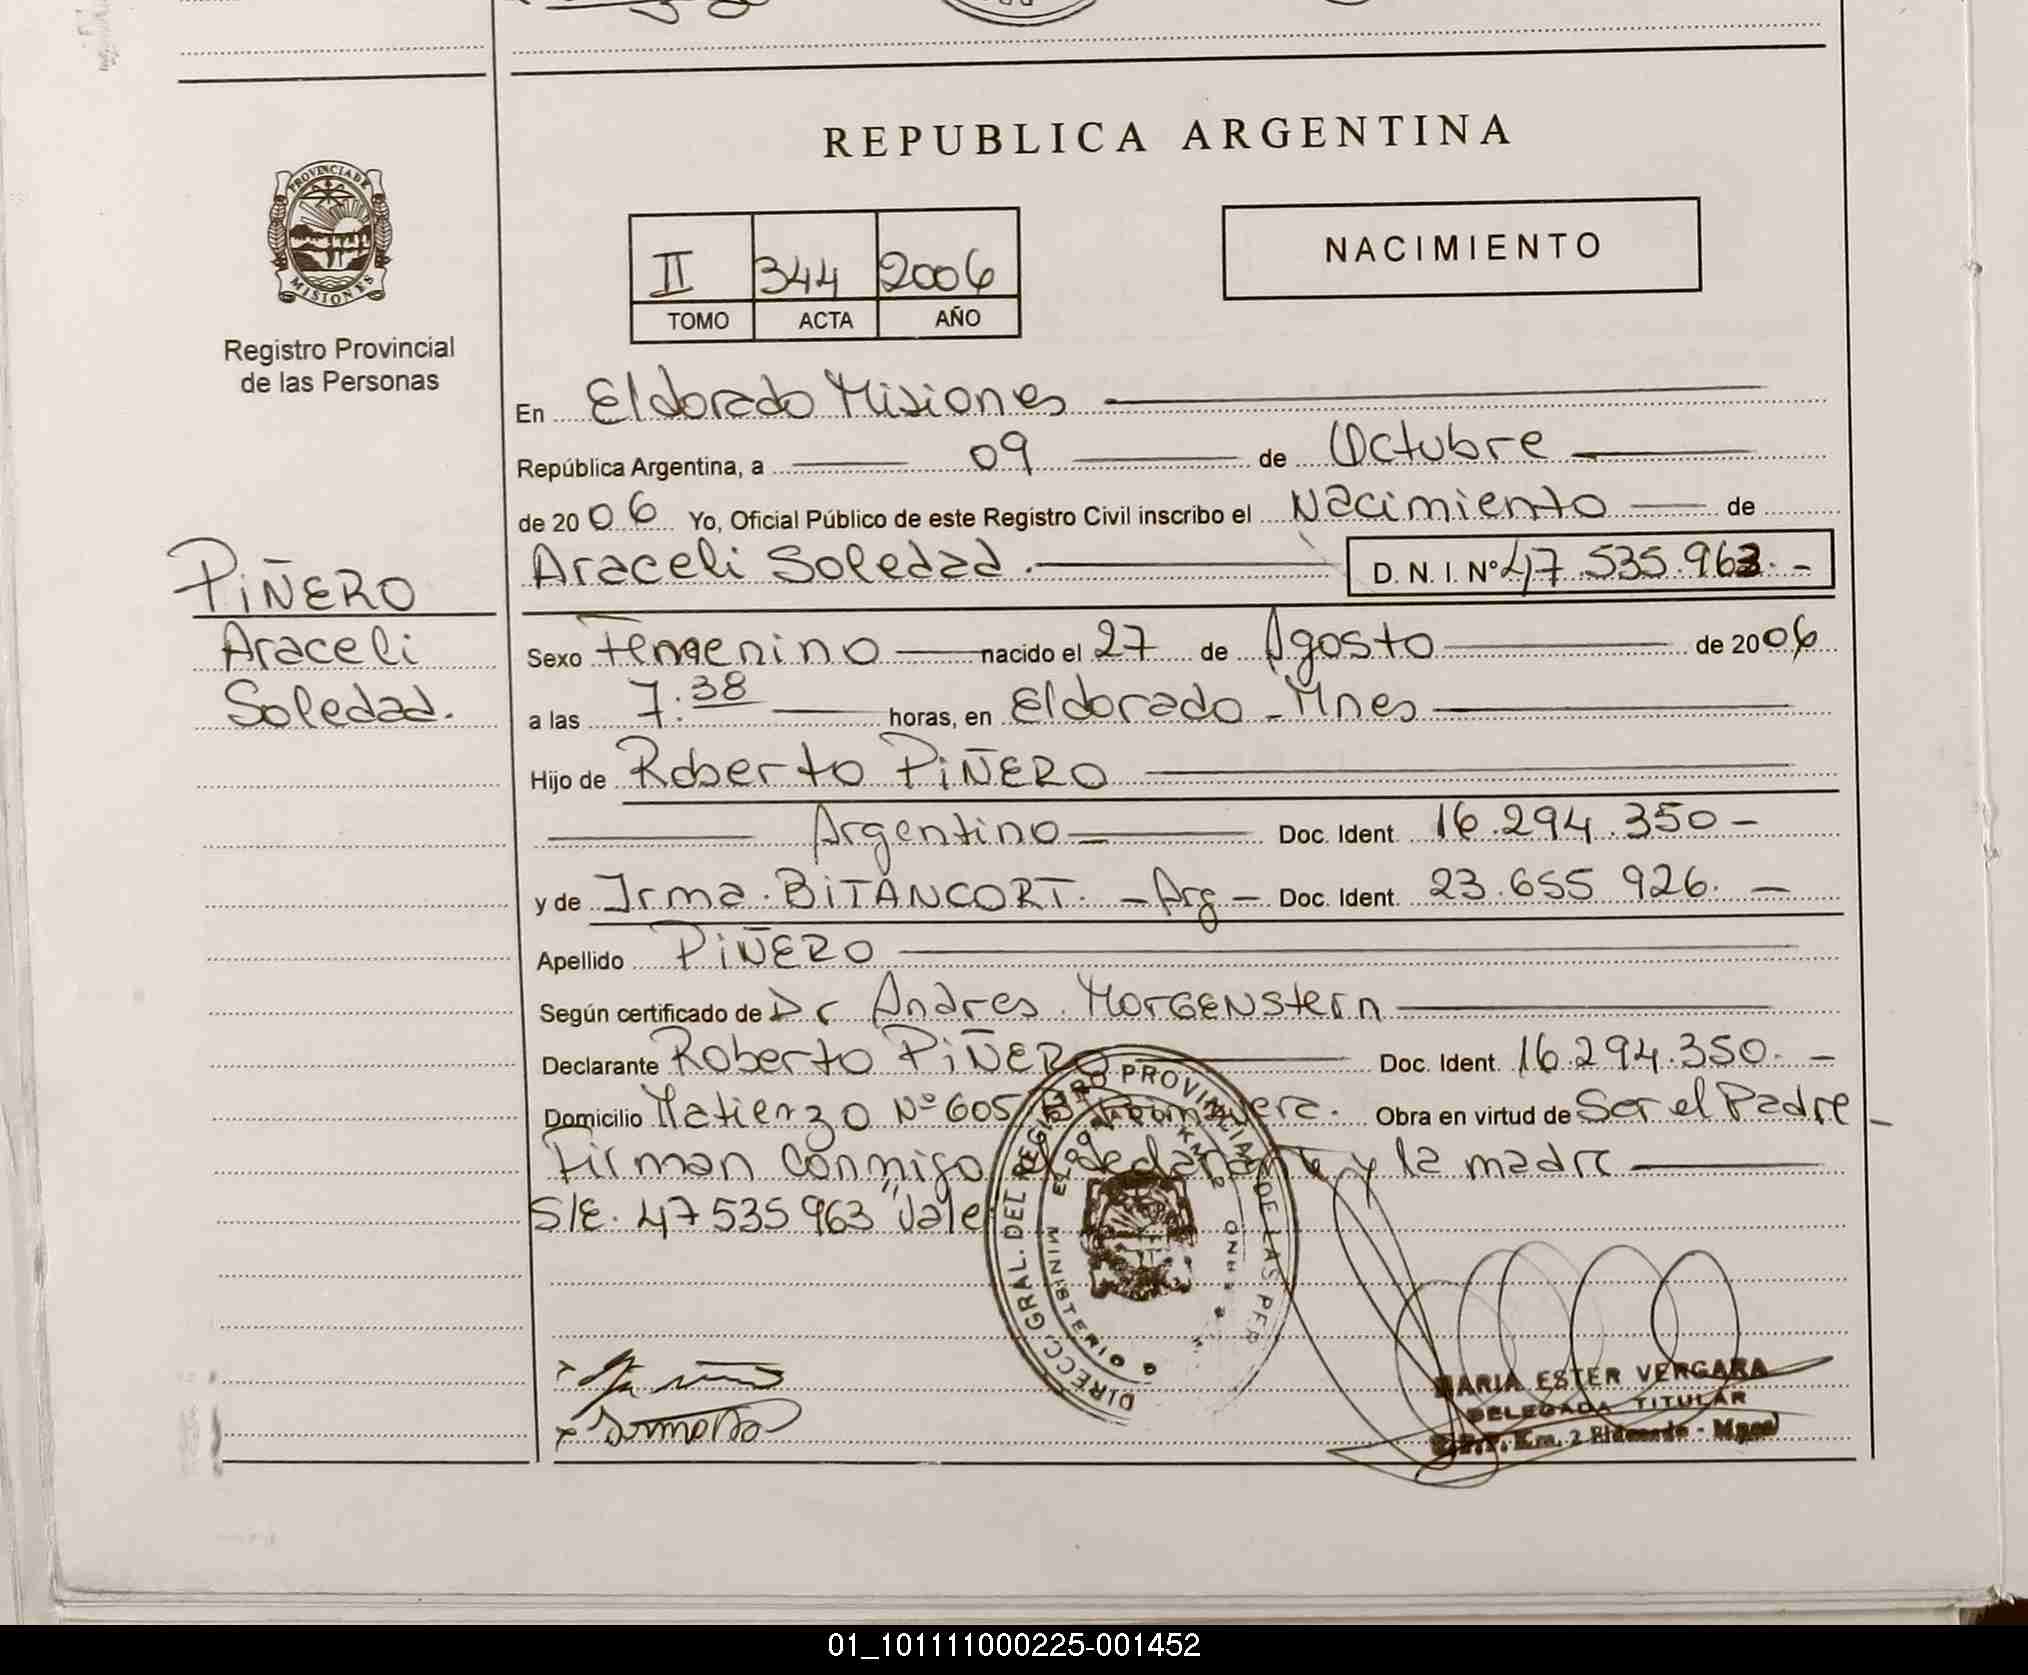 REPUBLICA ARGENTINA
PROVINCIA DE
MISIONES
Registro Provincial
de las Personas
II 344 2006
TOMO ACTA AÑO
NACIMIENTO
En Eldorado Misiones
República Argentina, a 09 de Octubre
de 2006 Yo, Oficial Público de este Registro Civil inscribo el Nacimiento de
Araceli Soledad. D. N. I. Nº 47.535.963.-
PIÑERO
Araceli
Soledad.
Sexo Femenino nacido el 27 de Agosto de 2006
a las 7:38 horas, en Eldorado - Mnes
Hijo de Roberto PIÑERO
Argentino Doc. Ident. 16.294.350-
y de Irma. BITANCORT. - Arg - Doc. Ident. 23.655 926. -
Apellido PIÑERO
Según certificado de Dr Andres MorGENStern
Declarante Roberto PIÑERO Doc. Ident. 16.294.350. -
Domicilio Matienzo Nº 605 Bº Primavera. Obra en virtud de Ser el Padre -
Firman conmigo el declarante y la madre
S/E. 47 535 963 "Vale
DIRECC. GRAL. DEL REGISTRO PROVINCIAL DE LAS PER
MINISTERIO
MARIA ESTER VERGARA
DELEGADA TITULAR
Km. 2 Eldorado -
01_101111000225-001452